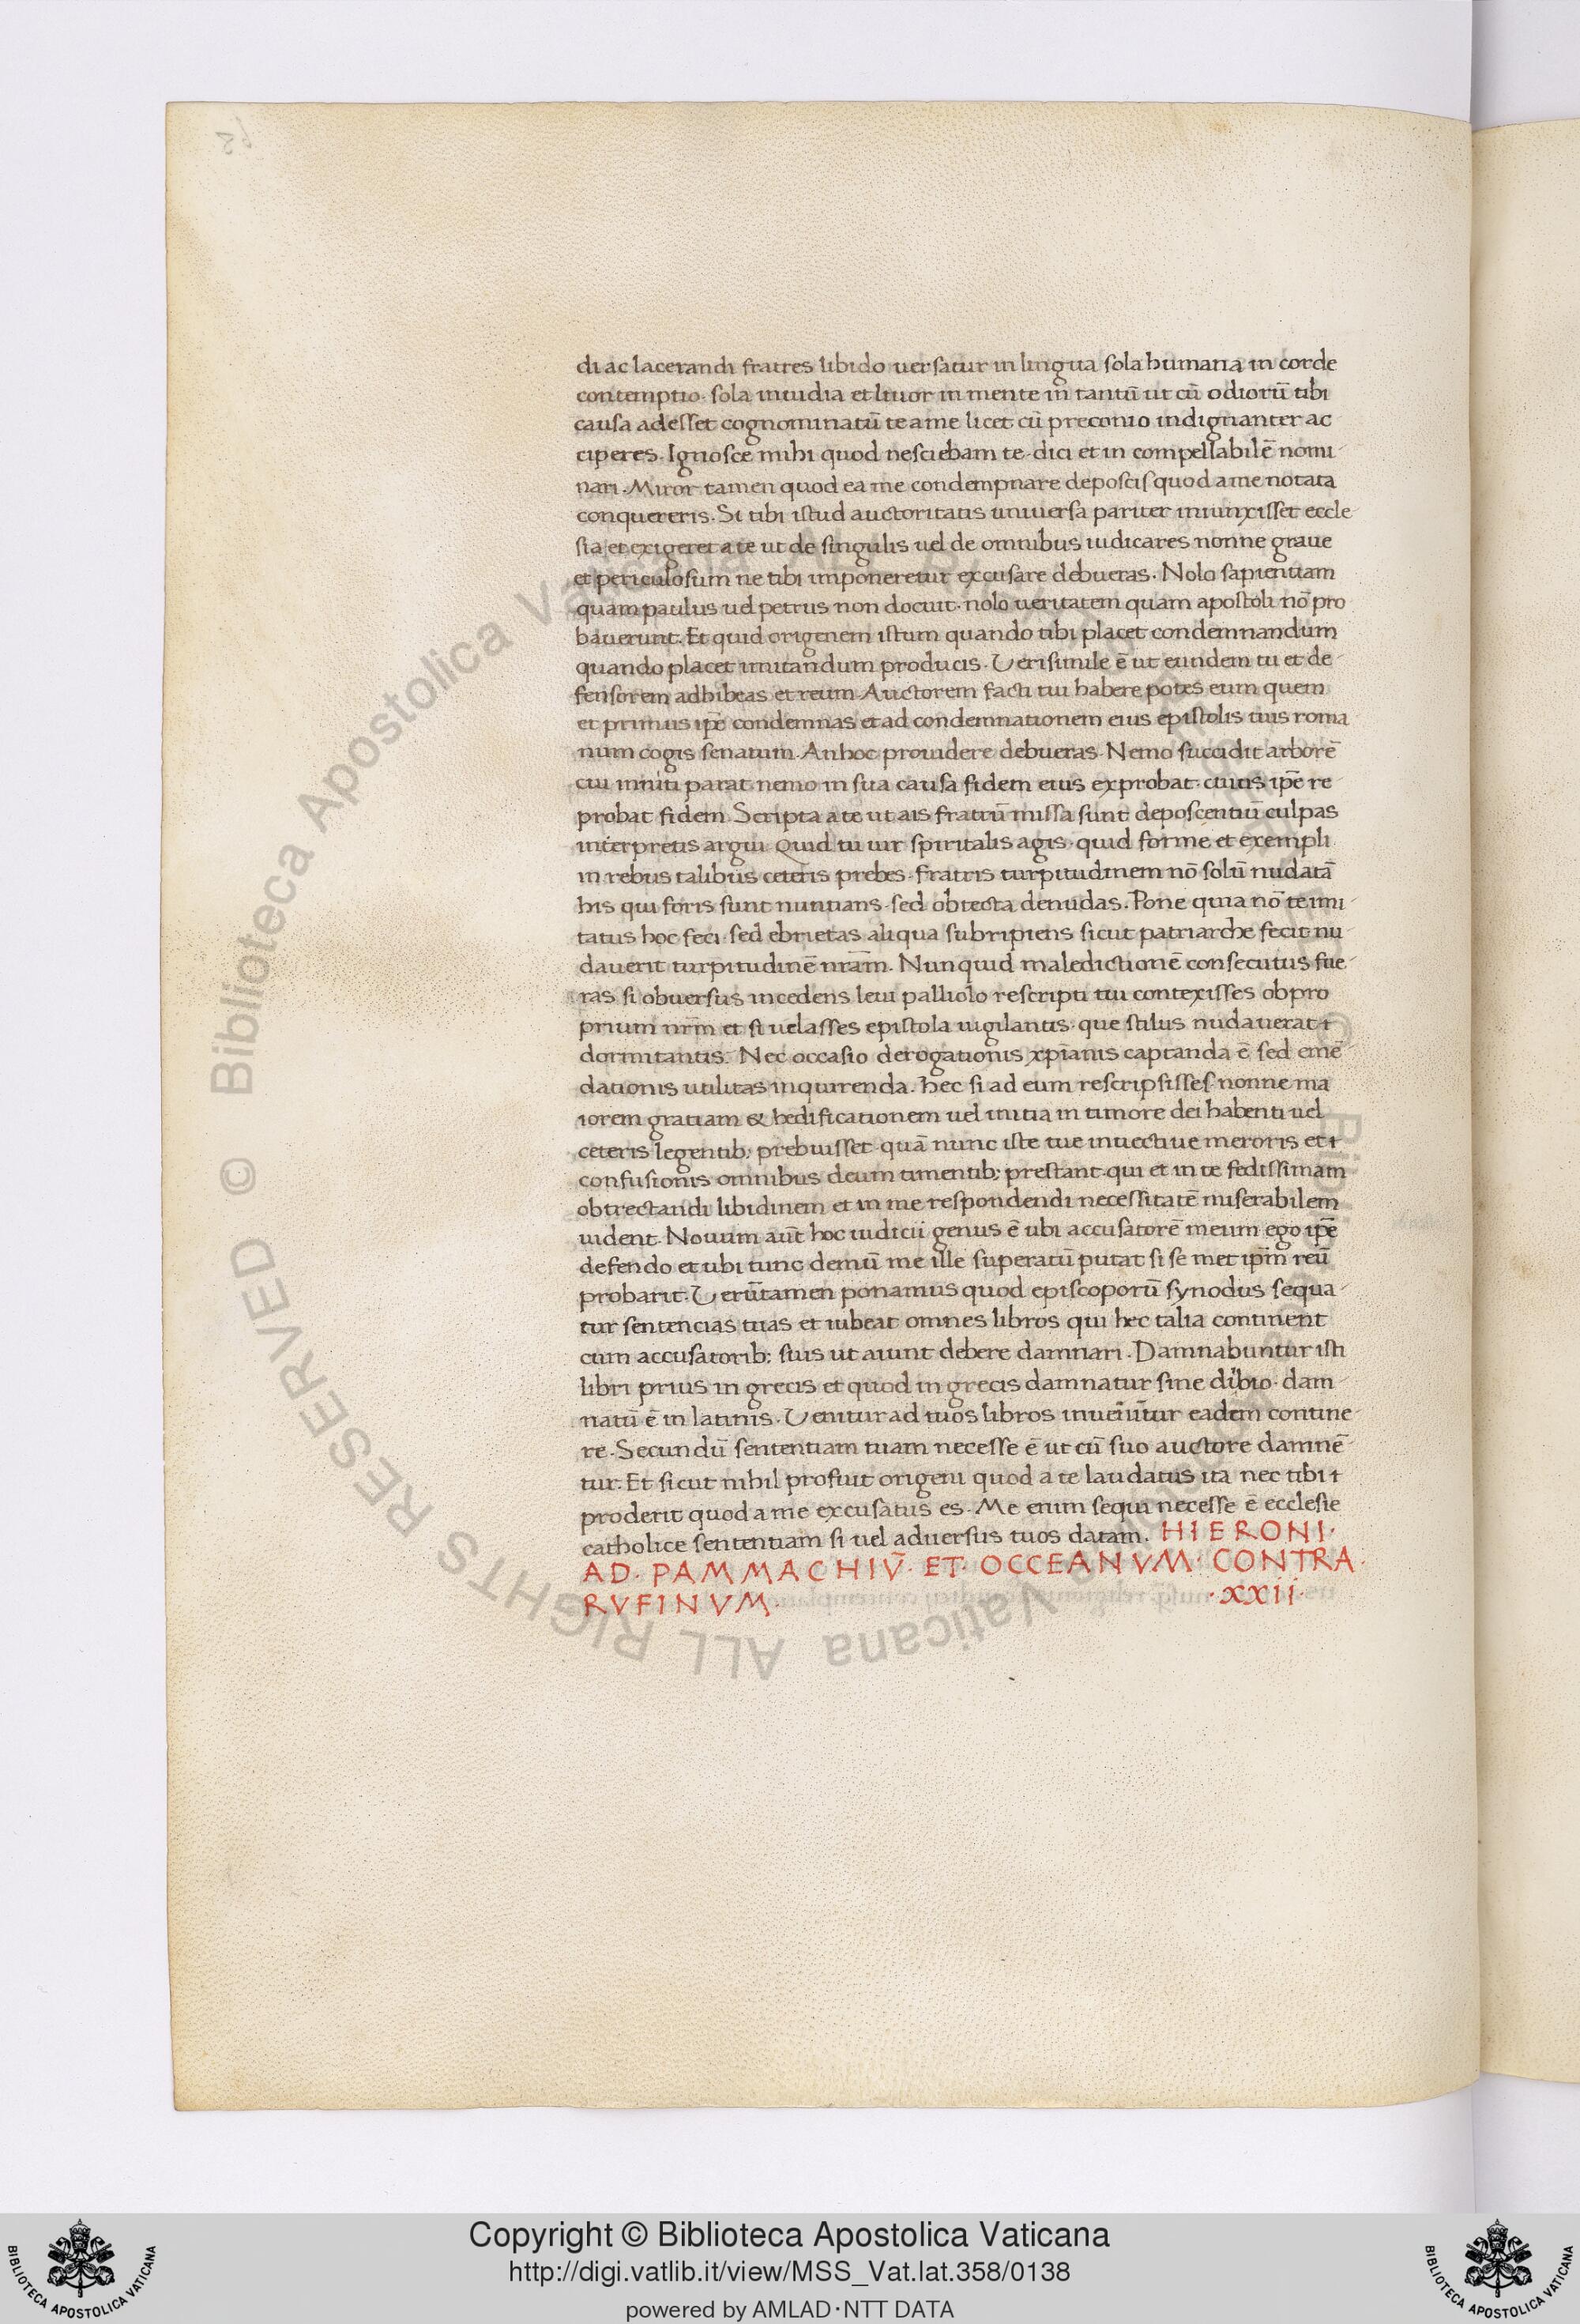 di ac lacerandi fratres libido uersatur in lingua sola humana in corde
contemptio· sola inuidia et liuor in mente in tantū ut cū odiorū tibi
causa adesset cognominatū te a me licet cū preconio indignanter ac
ciperes. Ignosce mihi quod nesciebam te dici et in compellabilē nomi-
nari. Miror tamen quod ea me condempnare deposcis quod a me notata
conquereris. Si tibi istud auctoritatis uniuersa pariter iniunxisset eccle
sia et exigeret a te ut de singulis uel de omnibus iudicares nonne graue
et periculosum ne tibi imponeretur excusare debueras. Nolo sapientiam
quam paulus uel petrus non docuit· nolo ueritatem quam apostoli nō pro
bauerunt. Et quid origenem istum quando tibi placet condemnandum
quando placet imitandum producis. Verisimile ē ut eundem tu et de-
fensorem adhibeas et reum. Auctorem facti tui habere potes eum quem
et primus ipē condemnas et ad condemnationem eius epistolis tuis roma
num cogis senatum. An hoc prouidere debueras. Nemo succidit arborē
cui inniti parat nemo in sua causa fidem eius exprobat· cuius ipē re
probat fidem. Scripta a te ut ais fratrū missa sunt deposcentiū culpas
interpretis argui. Quid tu uir spiritalis agis· quid forme et exempli
in rebus talibus ceteris prebes· fratris turpitudinem nō solū nudatā
his qui foris sunt nuntians· sed obtecta denudas. Pone quia nō te imi-
tatus hoc feci· sed ebrietas aliqua subripiens sicut patriarche fecit nu
dauerit turpitudinē nr̄am. Nunquid maledictionē consecutus fue-
ras si obuersus incedens leui palliolo rescripti tui contexisses obpro
prium nr̄m et si uelasses epistola uigilantis· que stilus nudauerat
dormitantis. Nec occasio derogationis xp̄ianis captanda ē sed emē
dationis utilitas inquirenda. Hec si ad eum rescripsisses nonne ma
iorem gratiam & hedificationem uel initia in timore dei habenti uel
ceteris legentib; prebuisset· quā nunc iste tue inuectiue meroris et
confusionis omnibus deum timentib; prestant· qui et in te fedissimam
obtrectandi libidinem et in me respondendi necessitatē miserabilem
uident. Nouum aūt hoc iudicii genus ē ubi accusatorē meum ego ipē
defendo et ubi tunc demū me ille superatū putat si se met ip̄m reū
probarit. Verūtamen ponamus quod episcoporū synodus sequa-
tur sentencias tuas et iubeat omnes libros qui hec talia continent
cum accusatorib; suis ut aiunt debere damnari. Damnabuntur isti
libri prius in grecis et quod in grecis damnatur sine dubio· dam-
natū ē in latinis. Venitur ad tuos libros inueniūtur eadem contine-
re. Secundū sententiam tuam necesse ē ut cū suo auctore damnē-
tur. Et sicut nihil profuit origeni quod a te laudatus ita nec tibi
proderit quod a me excusatus es. Me enim sequi necesse ē ecclesie
catholice sententiam si uel aduersus tuos datam. HIERONI·
AD· PAMMACHIV̄· ET· OCCEANVM· CONTRA·
RVFINVM· ·XXII·
© Biblioteca Apostolica Vaticana ALL RIGHTS RESERVED
Copyright © Biblioteca Apostolica Vaticana
http://digi.vatlib.it/view/MSS_Vat.lat.358/0138
powered by AMLAD·NTT DATA
BIBLIOTECA APOSTOLICA VATICANA
BIBLIOTECA APOSTOLICA VATICANA